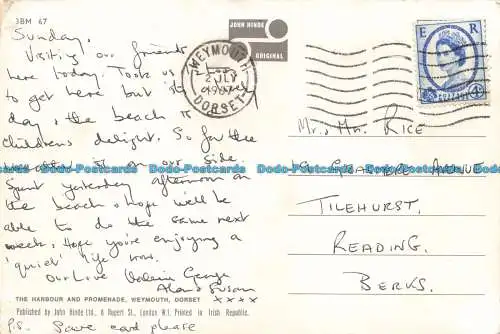 3BM 67
Sunday.
Visiting our friends
here today. Took us
to get here but it
day, & the beach is
childrens delight. So far the
on our side
Spent yesterday afternoon on
the beach & hope we'll be
able to do the same next
week. Hope you're enjoying a
'quiet' life now.
Our Love Valerie George
Alan & Susan
xxxx
THE HARBOUR AND PROMENADE, WEYMOUTH, DORSET
Published by John Hinde Ltd., 6 Rupert St., London W.1. Printed in Irish Republic.
P.S. Save card please
JOHN HINDE
ORIGINAL
WEYMOUTH
JULY
1967
DORSET
E R
4D
Mr. & Mrs. RICE
AVENUE
TILEHURST.
READING.
BERKS.
Dodo-Postcards Dodo-Postcards Dodo-Postcards Dodo-Postcards